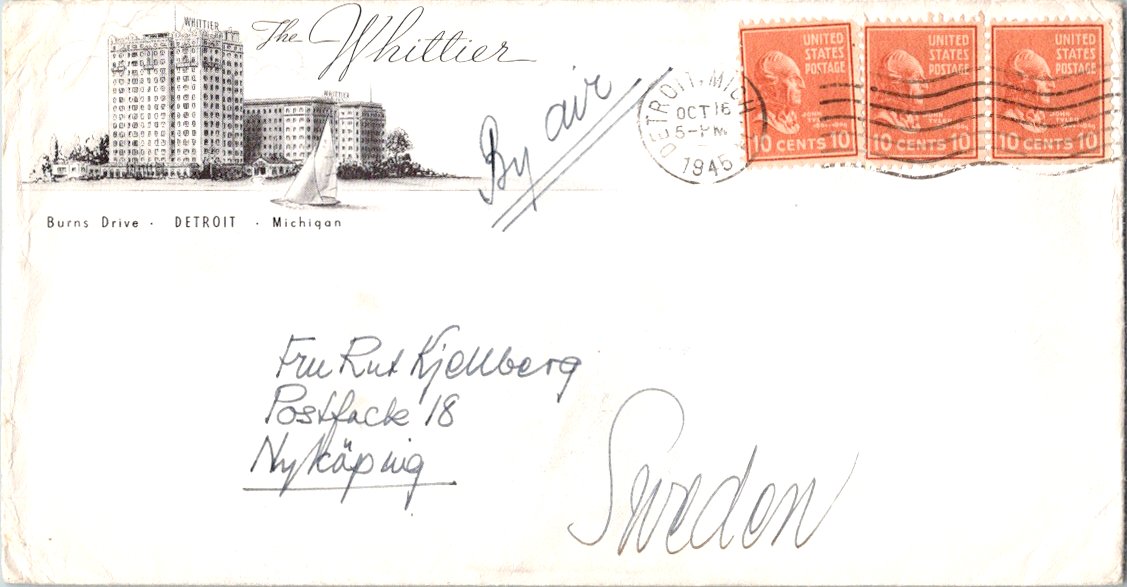 WHITTIER
The Whittier
WHITTIER
Burns Drive · DETROIT · Michigan
By air
DETROIT, MICH.
OCT 16
5-PM
1945
UNITED
STATES
POSTAGE
JOHN
10 CENTS 10
UNITED
STATES
POSTAGE
JOHN
TYLER
10 CENTS 10
UNITED
STATES
POSTAGE
JOHN
TYLER
10 CENTS 10
Fru Rut Kjellberg
Postfack 18
Nyköping
Sweden